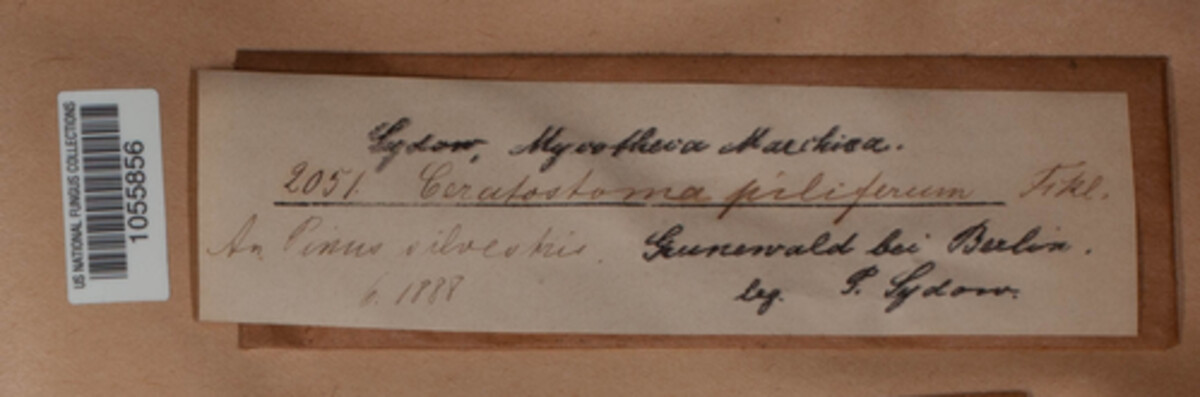 US NATIONAL FUNGUS COLLECTIONS
1055856
Sydow, Mycotheca Marchica.
2051. Ceratostoma piliferum Fckl.
An Pinus silvestris. Grunewald bei Berlin.
6. 1888 leg. P. Sydow.